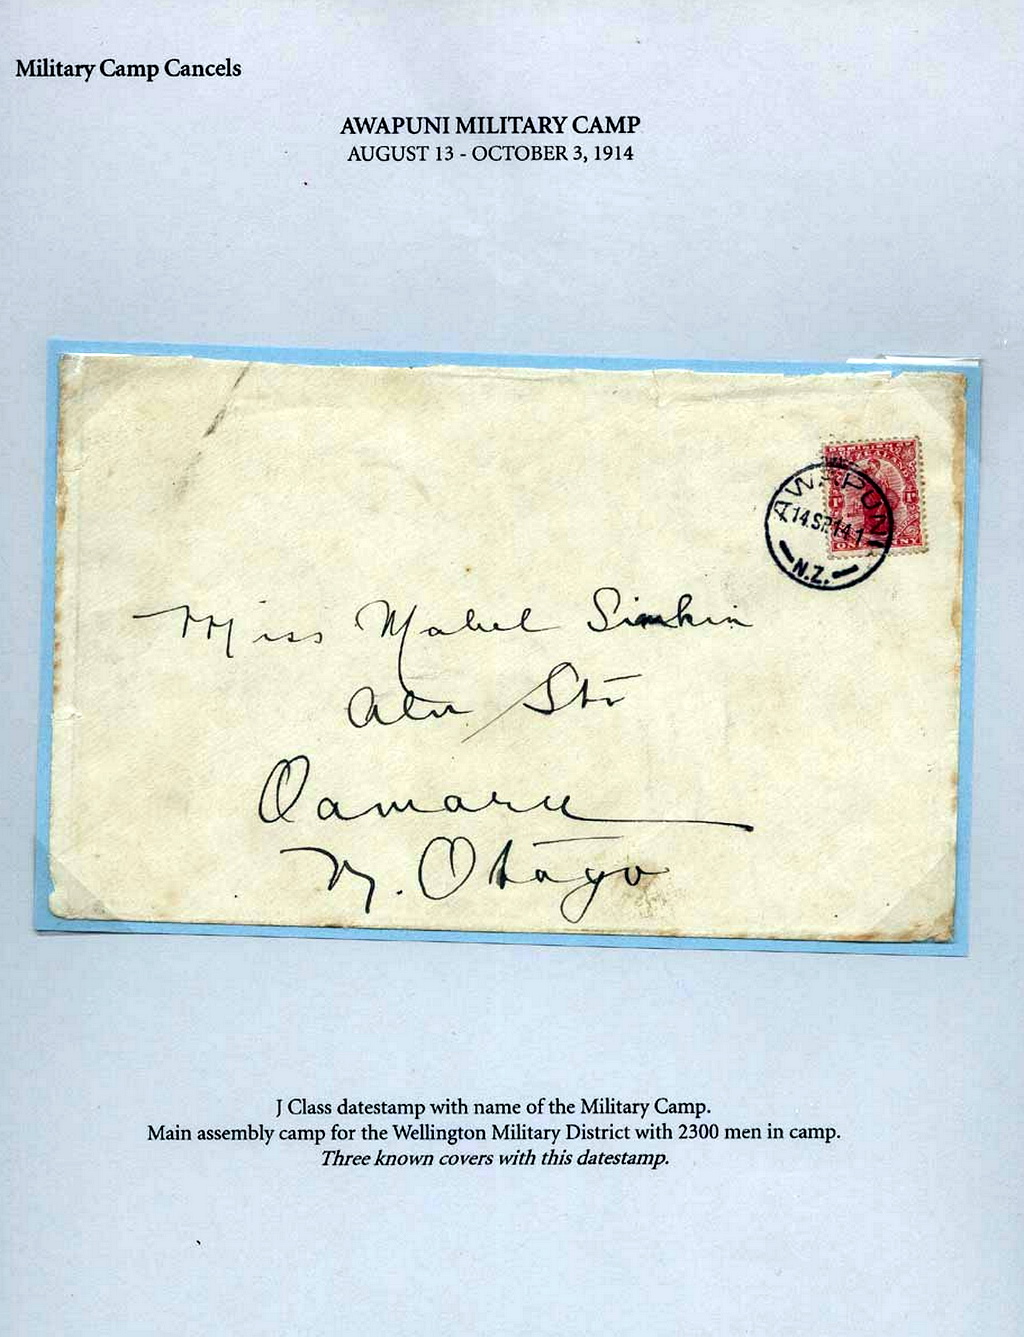 Military Camp Cancels
AWAPUNI MILITARY CAMP
AUGUST 13 - OCTOBER 3, 1914
AWAPUNI
14.SP.14 1
N.Z.
Miss Mabel Simkin
Str
Oamaru
N. Otago
J Class datestamp with name of the Military Camp.
Main assembly camp for the Wellington Military District with 2300 men in camp.
Three known covers with this datestamp.